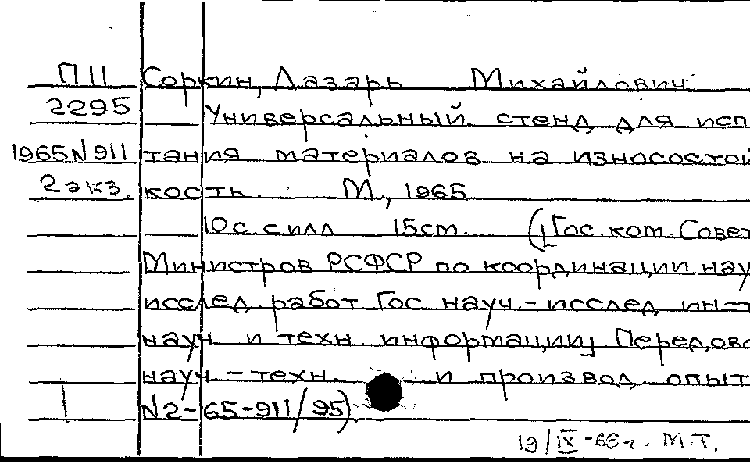 П11 Соркин, Лазарь Михайлович
2295 Универсальный стенд для исп
1965 N 911 тания материалов на износостой
2 экз. кость. М., 1965
10 с с илл 15 см. (Гос. ком. Совет
Министров РСФСР по координации нау
исслед. работ Гос науч.-исслед ин-т
науч и техн информации Передово
науч-техн. и производ опыт
N2-65-911/95).
19/IX-66 г. М.Т.